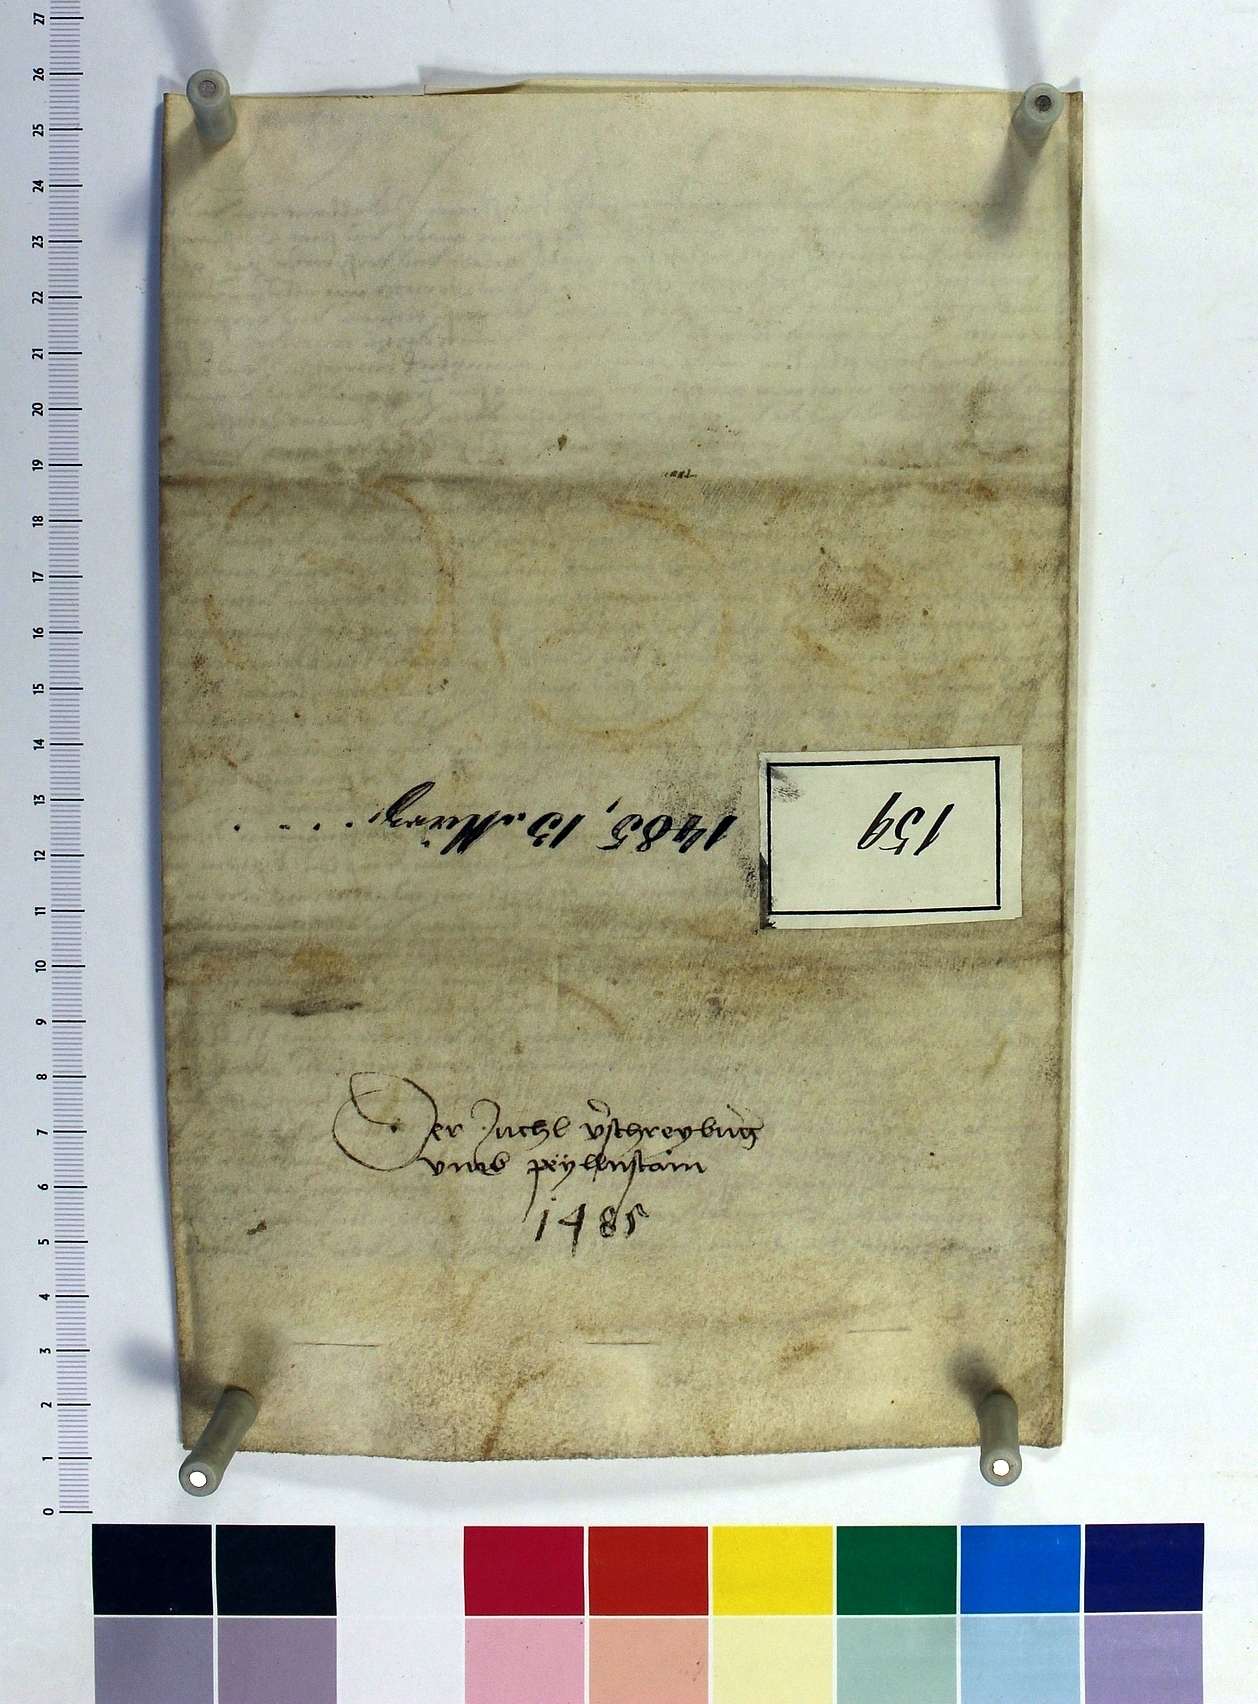 159
1485, 13. März. . . . .
Der Juchl v̄schreybu̅g
vmb peyllnstain
1485
27
26
25
24
23
22
21
20
19
18
17
16
15
14
13
12
11
10
9
8
7
6
5
4
3
2
1
0